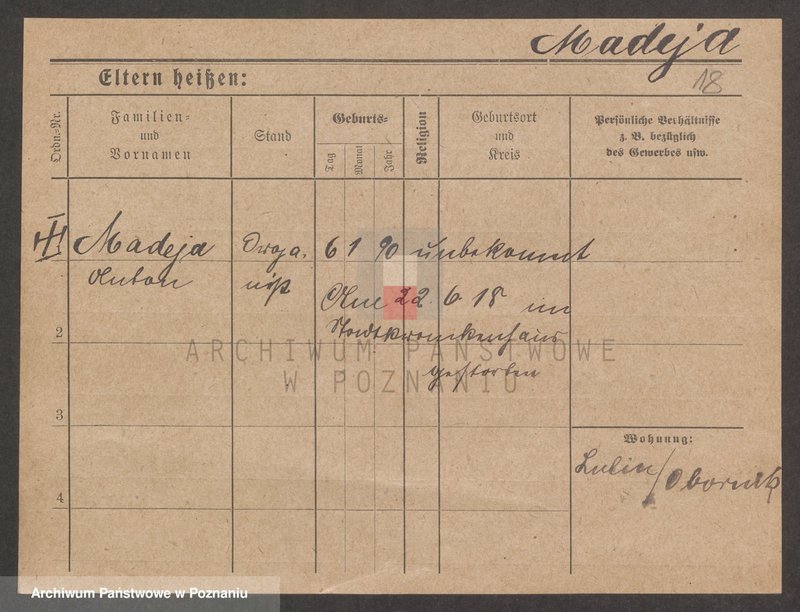 Madeja
18
Eltern heißen:
Ordn.-Nr.
Familien-
und
Vornamen
Stand
Geburts-
Tag
Monat
Jahr
Religion
Geburtsort
und
Kreis
Persönliche Verhältnisse
z. B. bezüglich
des Gewerbes usw.
Madeja
Anton
Orga-
nist
6 1 90 unbekannt
Am 22.6.18 im
Stadtkrankenhaus
gestorben
2
3
4
Wohnung:
Lulin/Obornik
ARCHIWUM PAŃSTWOWE
W POZNANIU
Archiwum Państwowe w Poznaniu